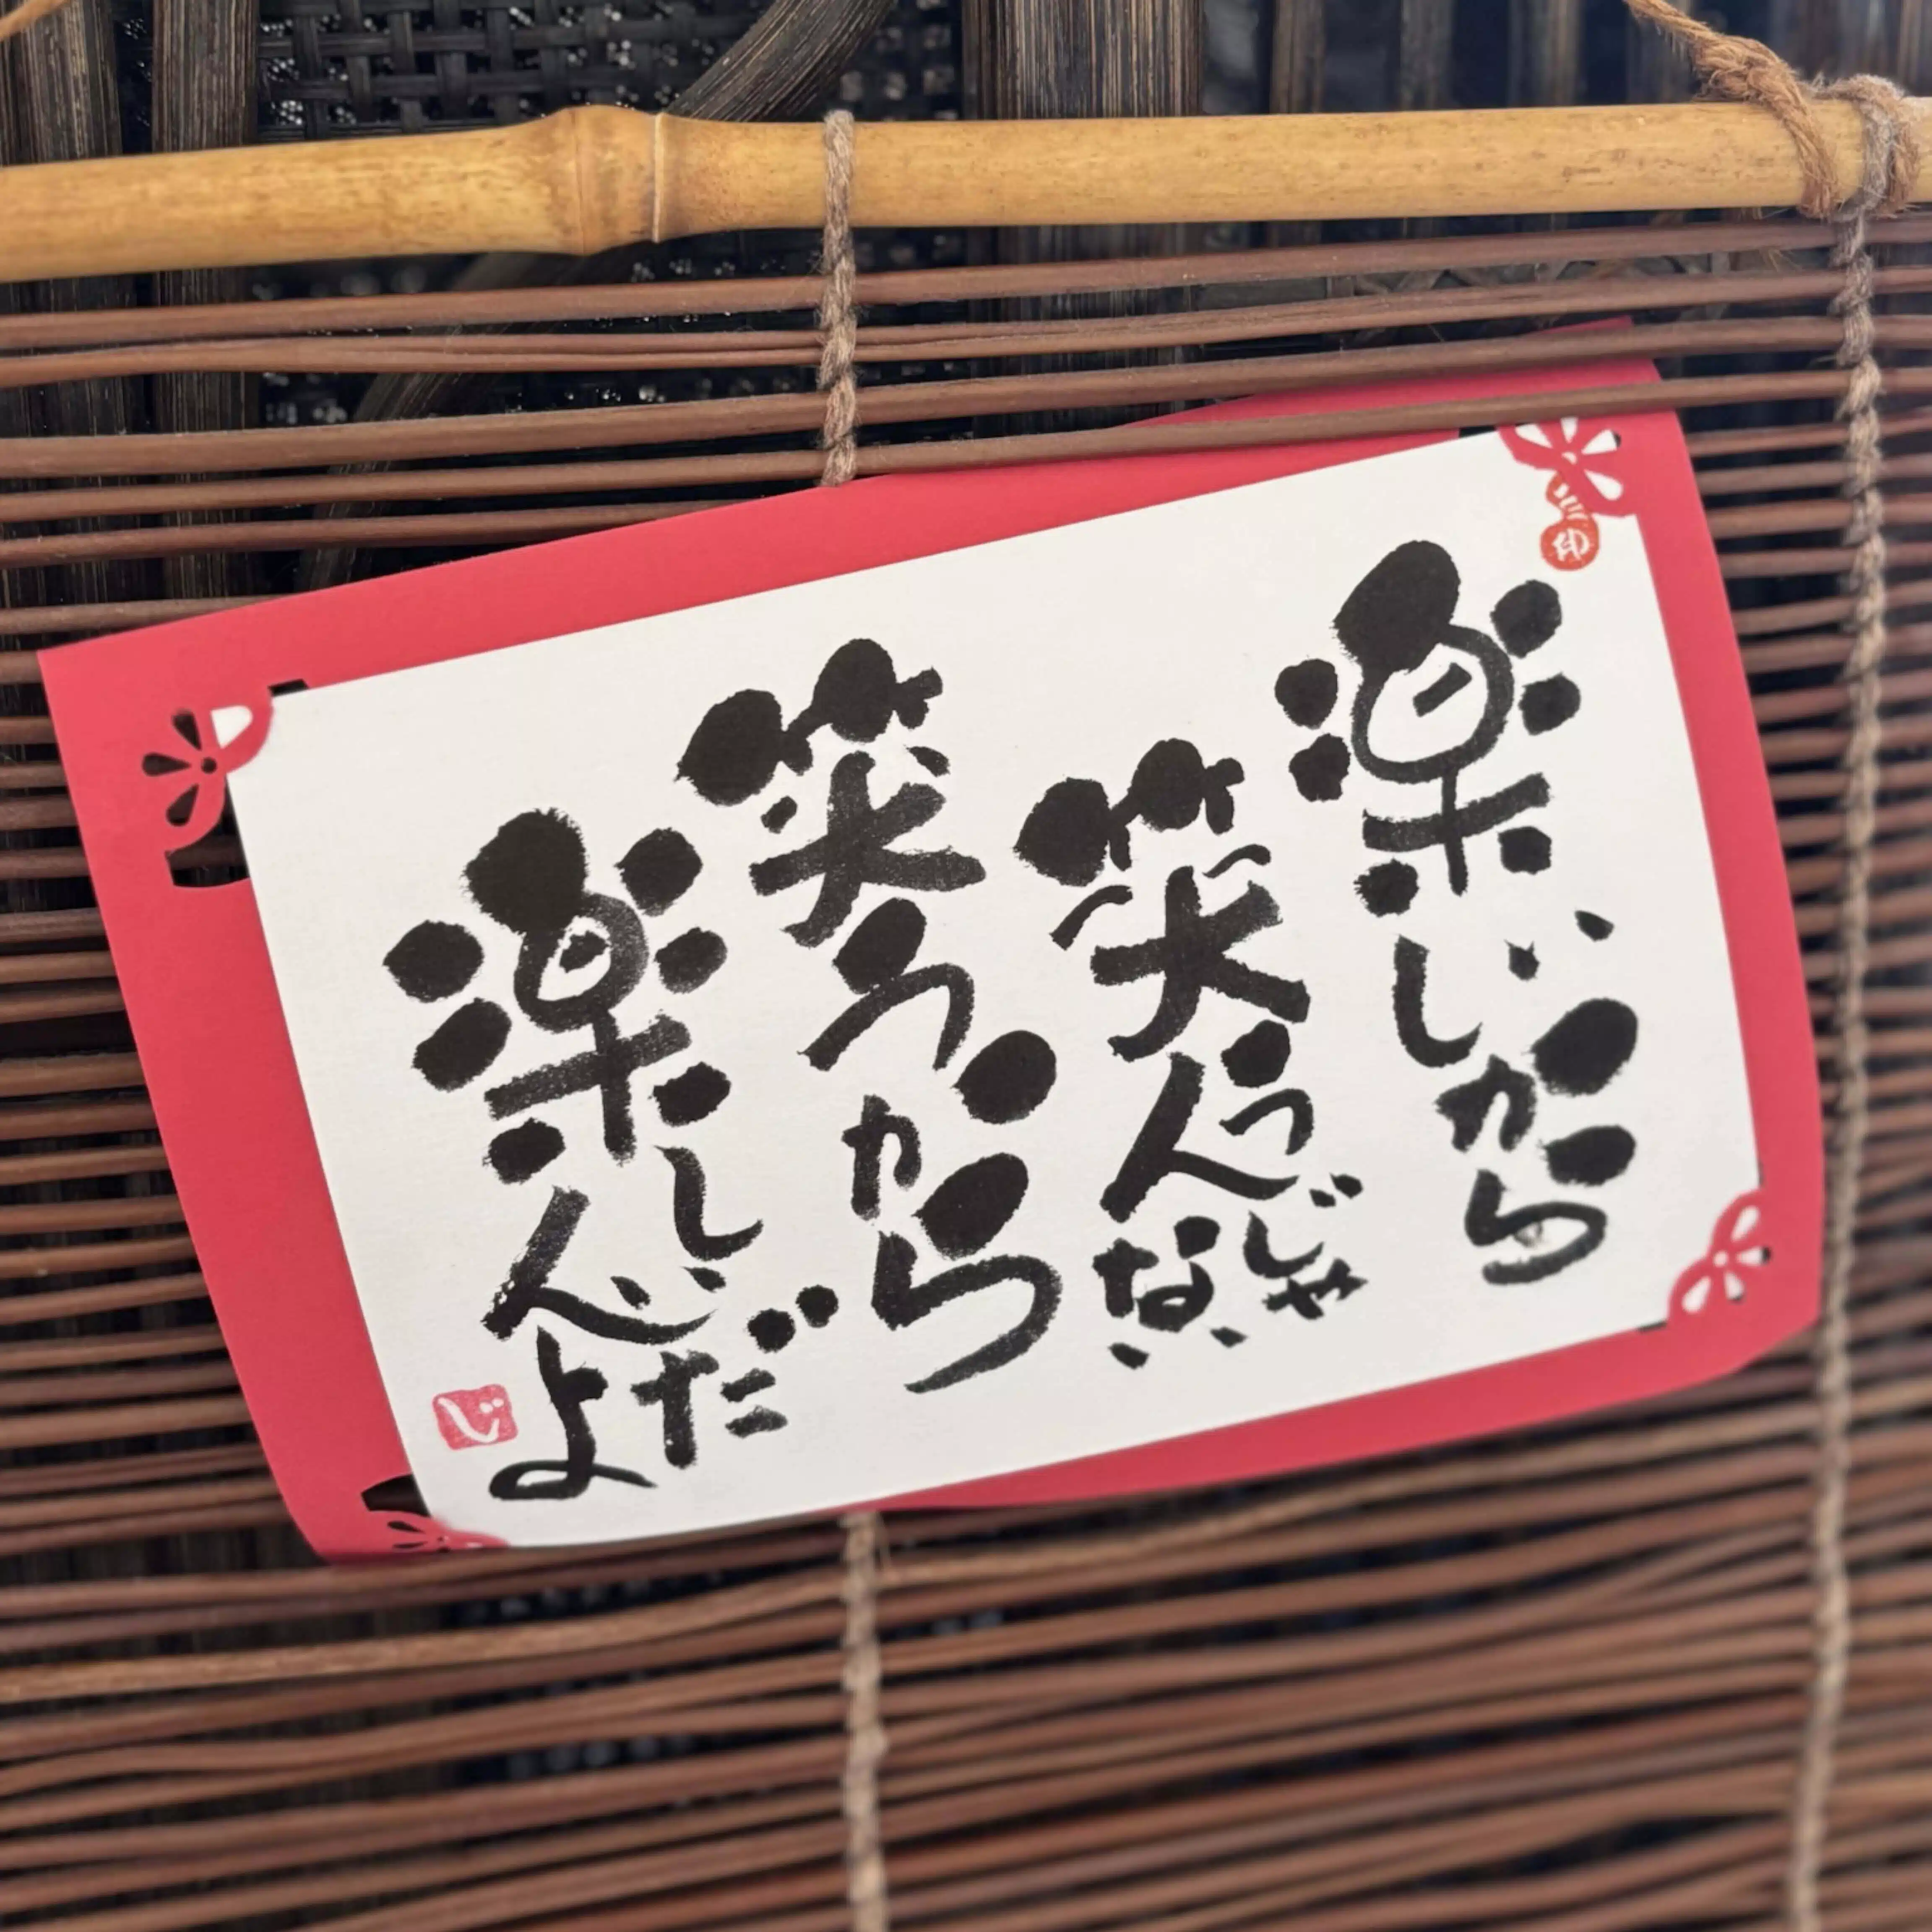 楽しいから
笑うんじゃない
笑うから
楽しいんだよ
じ